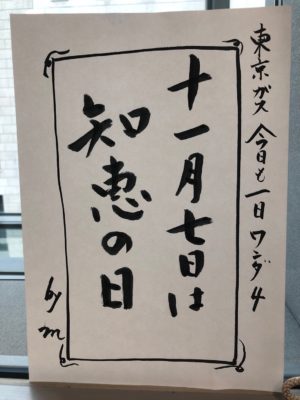 東京ガス 今日も一日 ワンダ4
十一月七日は
知恵の日
by m